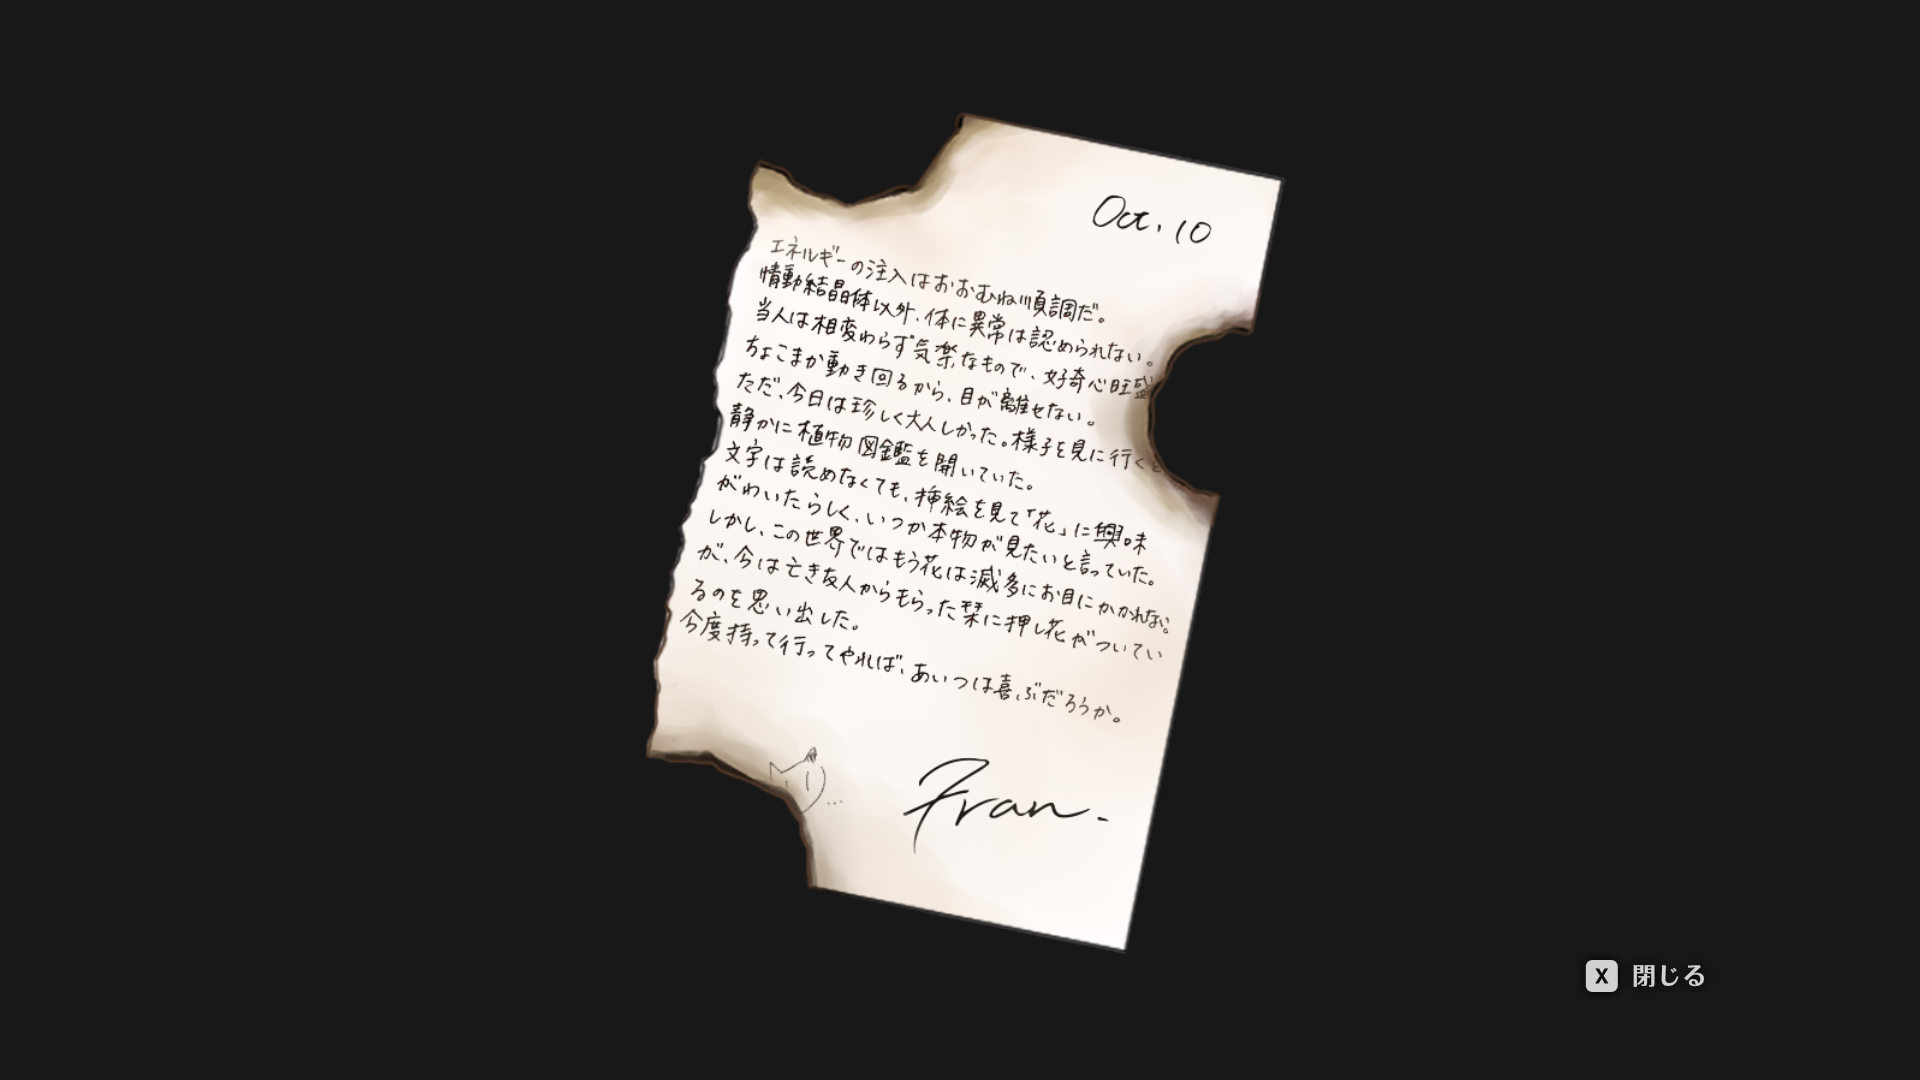 Oct. 10
エネルギーの注入はおおむね順調だ。
情動結晶体以外、体に異常は認められない。
当人は相変わらず気楽なもので、好奇心旺盛
ちょこまか動き回るから、目が離せない。
ただ、今日は珍しく大人しかった。様子を見に行くと
静かに植物図鑑を開いていた。
文字は読めなくても、挿絵を見て「花」に興味
がわいたらしく、いつか本物が見たいと言っていた。
しかし、この世界ではもう花は滅多にお目にかかれない。
が、今は亡き友人からもらった栞に押し花がついてい
るのを思い出した。
今度持って行ってやれば、あいつは喜ぶだろうか。
Fran.
X 閉じる